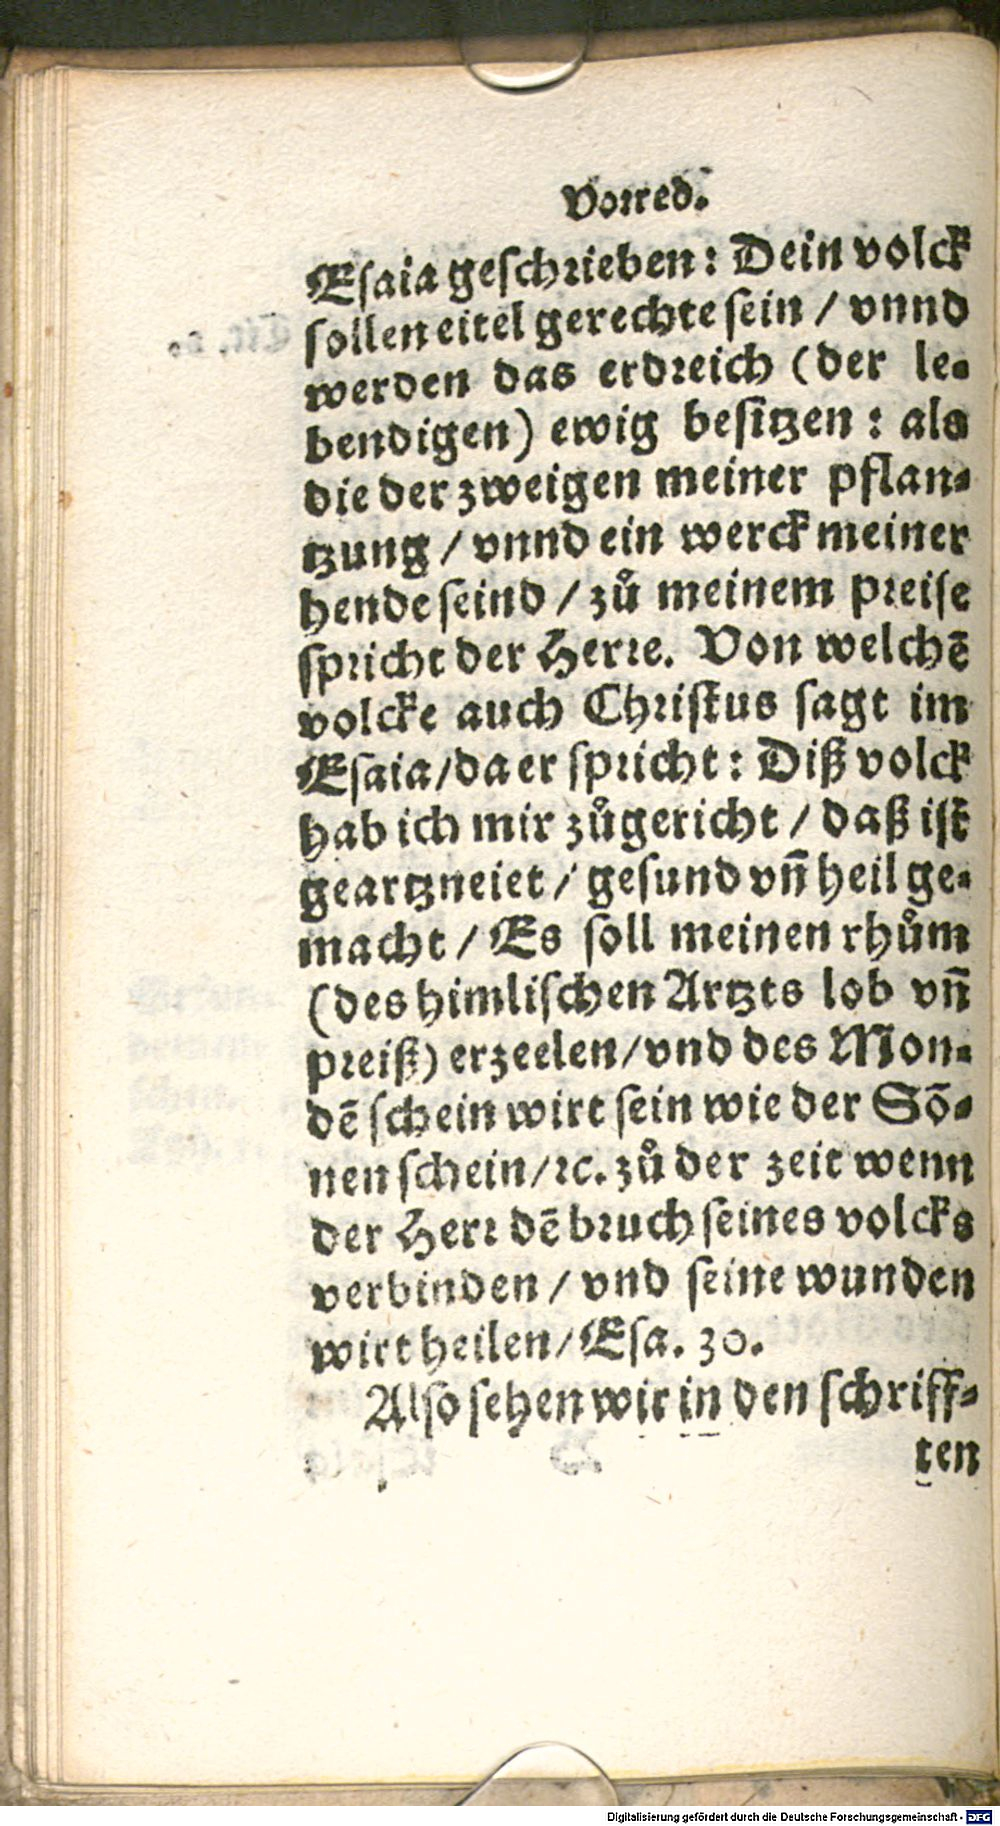 Vorred.
Esaia geschrieben: Dein volck
sollen eitel gerechte sein / vnnd
werden das erdreich (der le-
bendigen) ewig besitzen: als
die der zweigen meiner pflan-
tzung / vnnd ein werck meiner
hende seind / zů meinem preise
spricht der Herre. Von welchē
volcke auch Christus sagt im
Esaia/da er spricht: Diß volck
hab ich mir zůgericht / daß ist
geartzneiet / gesund vn̄ heil ge-
macht / Es soll meinen rhům
(des himlischen Artzts lob vn̄
preiß) erzeelen/vnd des Mon-
dē schein wirt sein wie der Sō-
nen schein/ꝛc. zů der zeit wenn
der Herr dē bruch seines volcks
verbinden / vnd seine wunden
wirt heilen/Esa. 30.
Also sehen wir in den schriff-
ten
Digitalisierung gefördert durch die Deutsche Forschungsgemeinschaft - DFG